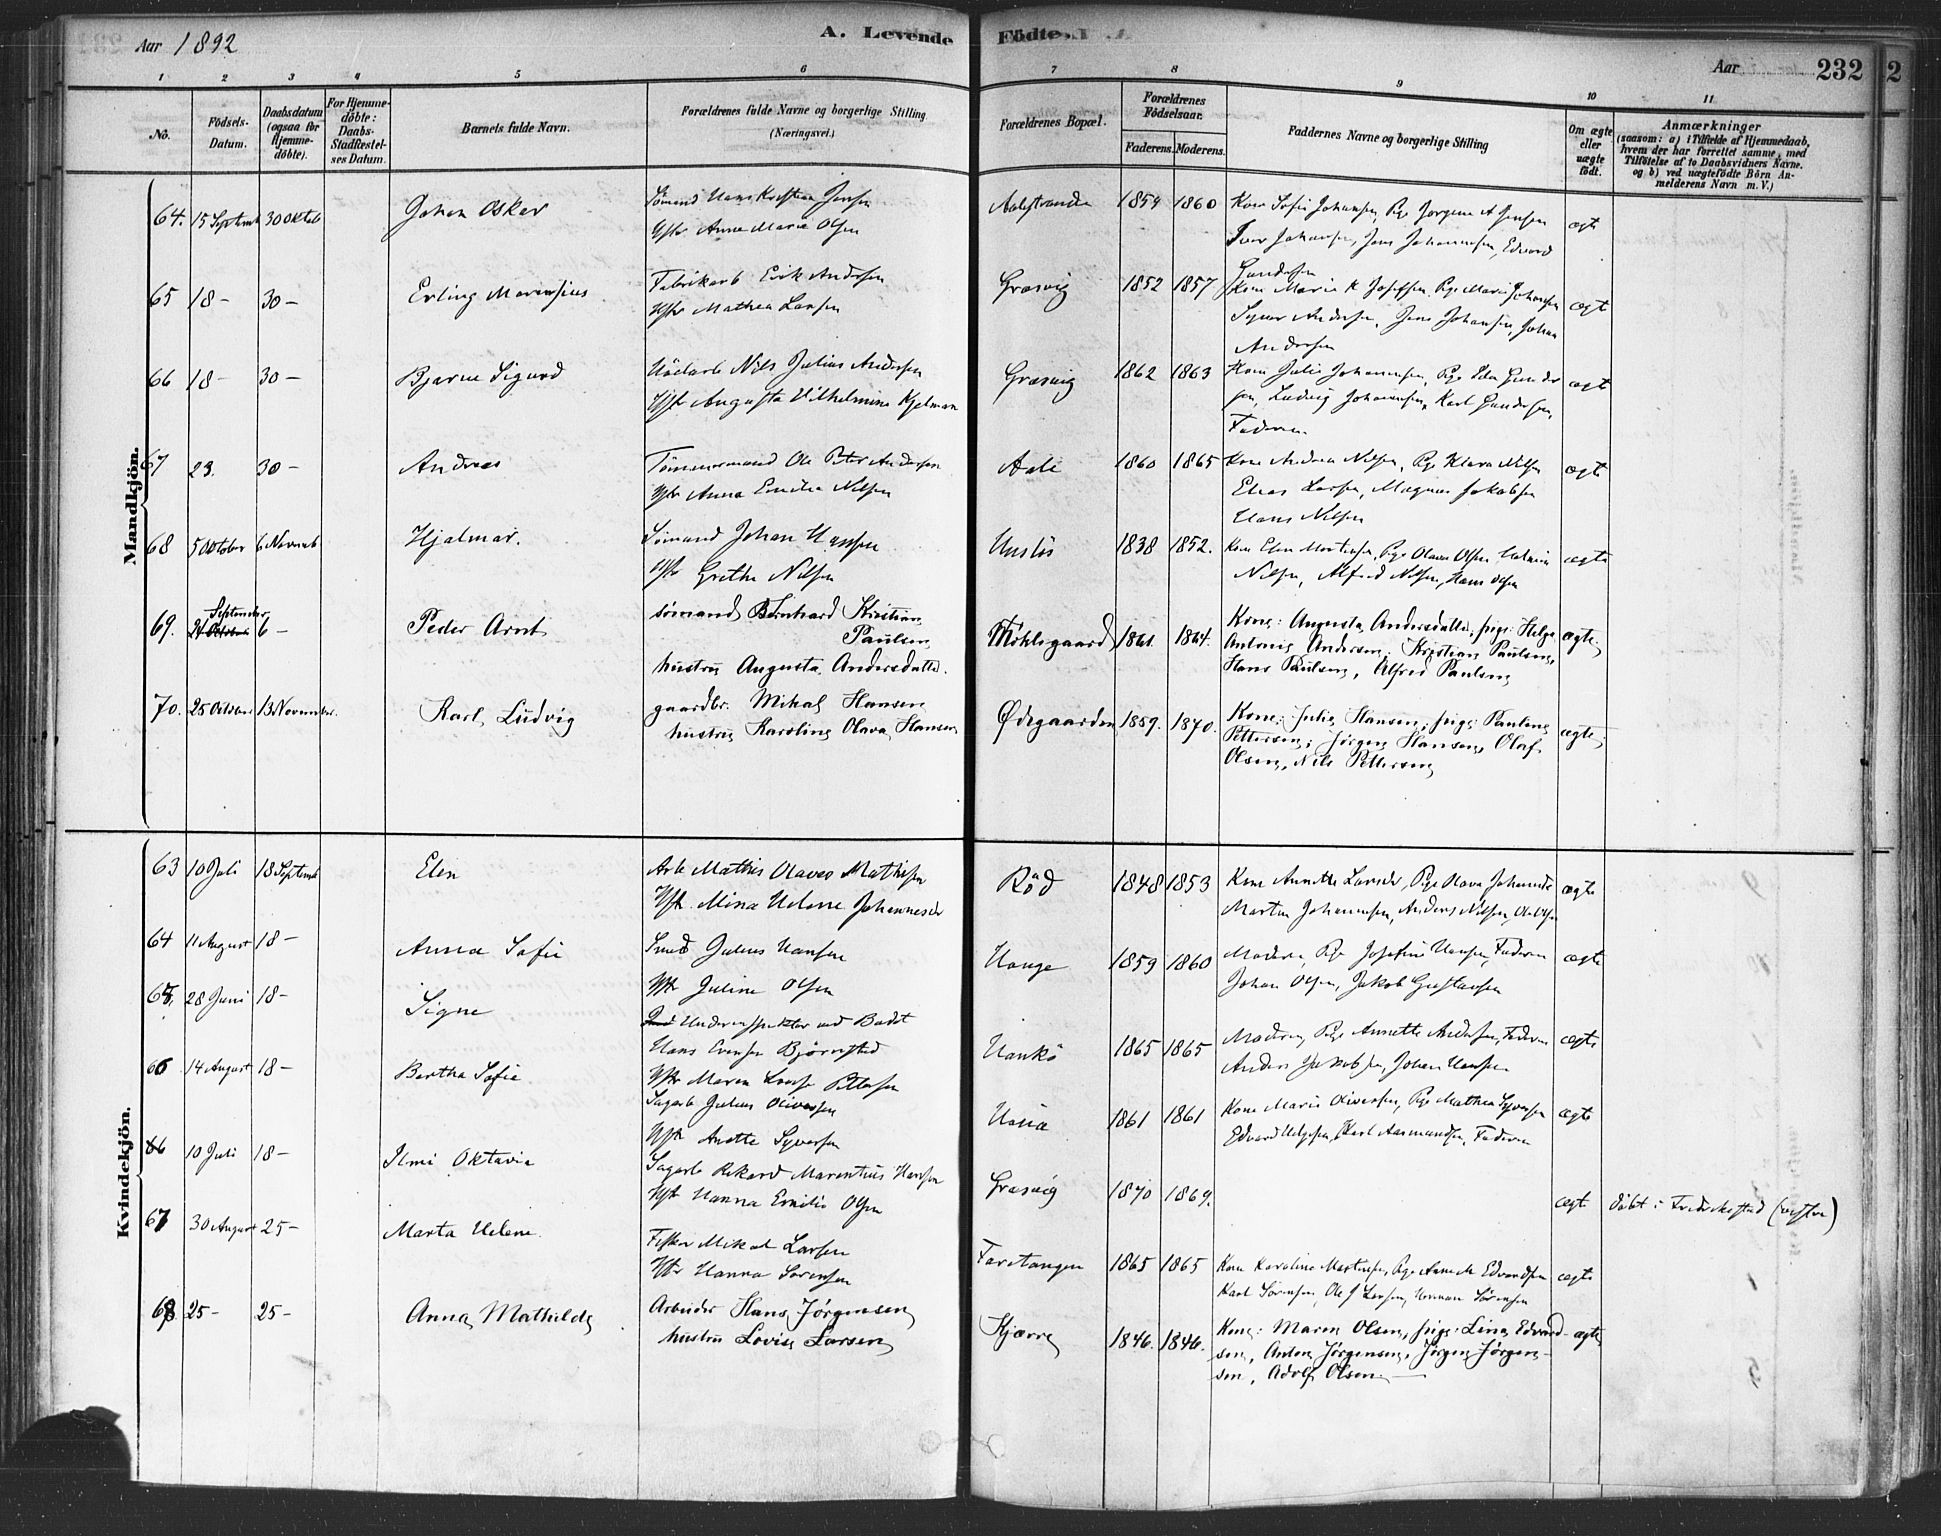 Aar 1892
A. Levende
Fødte.
Aar
232
1 2 3 4 5 6 7 8 9 10 11
No.
Fødsels-
Datum.
Daabsdatum
(ogsaa for
Hjemme-
døbte).
For Hjemme-
døbte:
Daabs-
Stadfæstel-
ses Datum.
Barnets fulde Navn.
Forældrenes fulde Navne og borgerlige Stilling
(Næringsvei.)
Forældrenes Bopæl.
Forældrenes
Fødselsaar.
Faderens. Moderens.
Faddernes Navne og borgerlige Stilling
Om ægte
eller
uægte
født.
Anmærkninger
(saasom: a) i Tilfælde af Hjemmedaab,
hvem der har forrettet samme, med
Tilføielse af to Daabsvidners Navne.
og b) ved uægtefødte Børn An-
melderens Navn m. V.)
Mandkjön.
64. 15 Septemb 30 Oktob Johan Oskar Sømand Hans Kristian Jensen
Hstr Anne Marie Olsen
Aalestranda 1859 1860 Kone Sofie Johansen, Pige Jørgine A Jensen
Iver Johansen, Jens Johannesen, Edvard
Gundersen
ægt
65 18 – 30 – Erling Marensius Fabrikarb Erik Andersen
Hstr Mathea Larsen
Græsvig 1852 1857 Kone Maria K Josefsen, Pige Marie Johansen
Signer Andersen, Jens Johansen, Johan
Andersen
ægt
66 18 – 30 – Bjarne Sigurd Nils Julius Andersen
Hstr Augusta Vilhelmine Kjelman
Græsvig 1862 1863 Kone Julie Johannesen, Pige Ida Gunder
sen, Ludvig Johannesen, Karl Gundersen,
Faderen
ægt
67 23. 30 – Andreas Tømmermand Ole Peter Andersen
Hstr Anna Emilie Nilsen
Aale 1860 1865 Kone Andrea Nilsen, Pige Klara Nilsen
Elias Larsen, Magnus Jakobsen
Hans Nilsen
ægte
68 5 Oktober 6 Novemb Hjalmar. Sømand Johan Hansen
Hstr Grethe Nilsen
Husløs 1838 1852. Kone Elen Mortensen, Pige Olava Olsen,
Nilsen, Alfred Nilsen, Hans Olsen
ægte
69. September
24 6 – Peder Arnt sømand Bernhard Kristian
Paulsen,
hustru Augusta Andersdatter.
Møklegaard 1861 1864. Kone: Augusta Andersdatter, pige: Helga
Antonie Andersen, Kristian Paulsen,
Hans Paulsen, Alfred Paulsen,
ægte.
70. 25 Oktober 13 November. Karl Ludvig gaardbr. Mikal Hansen,
hustru Karoline Olava Hansen,
Ødegaarden 1859. 1870. Kone: Julie Hansen, pige: Pauline
Pettersen, Jørgen Hansen, Olaf
Olsen, Nils Pettersen,
ægte
Kvindekjön.
63 10 Juli 18 Septemb Elen Arb Mathis Olaves Mathisen
Hstr. Mina Helene Johannesdr
Röd 1848 1853 Kone Annette Larsdr, Pige Olava Johannesdr
Martin Johannesen, Anders Nilsen, Ole Olsen
ægte
64 11 August 18 – Anna Sofie Smed Julius Hansen
Hstr Juline Olsen
Hauge 1859 1860 Moderen, Pige Josefine Hansen, Faderen
Johan Olsen, Jakob Gustavsen
ægte
65. 28 Juni 18 – Signe Underinspektør ved Badet
Hans Evensen Bjørnstad
Hstr Maren Lovise Pettersen
Hankø 1865 1865 Moderen, Pige Annette Andersen, Faderen
Anders Jakobsen, Johan Hansen
ægte
66 14 August 18 – Bertha Sofie Sagarb Julius Oliversen
Hstr Anette Syversen
1861 1861 Kone Marie Oliversen, Pige Mathea Syversen
Edvard Helgesen, Karl Aasmundsen, Faderen
ægte
66 10 Juli 18 – Ilmi Oktavia Sagarb Rikard Marentius Hansen
Hstr Hanna Emilie Olsen
Græsvig 1870 1869. ægte Døbt i Fredrikstad (vestre)
67 30 August 25 – Marta Helene. Fisker Mikal Larsen
Hstr Hanna Sørensen
Faretangen 1865 1865 Kone Karoline Martinsen, Pige Anne M Edvardsen
Karl Sørensen, Ole J Larsen, Herman Sørensen
ægte
68 25 – 25 – Anna Mathilde Arbeider Hans Jørgensen
hustru Lovise Larsen
Kjærre 1846. 1846. Kone: Maren Olsen, pige: Lina Edvard-
sen, Anton Jørgensen, Jørgen Jørgen-
sen, Adolf Olsen. —
ægte